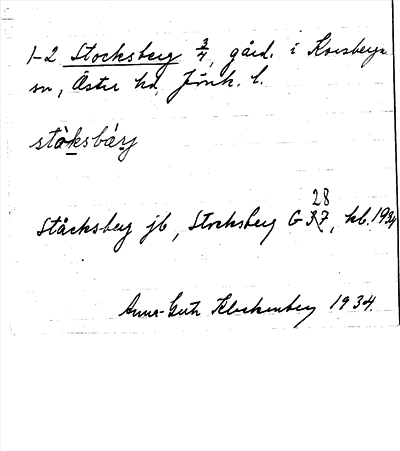 1-2 Stocksberg 3/4, gård. i Korsberga
sn, Östra hd, Jönk. l.
stòksbárj
Ståcksberg jb, Stocksberg G 37, kb. 1934
28
Anna-Greta Klockenberg 1934.